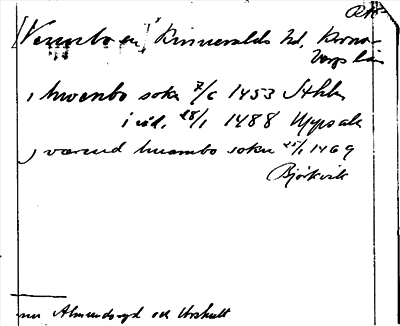 RA
Kinnevalds hd, Krono-
bergs län
, hwembo sokn 7/6 1453 Sthlm
i id, 28/1 1488 Uppsala
, värend huambo soken 25/1 1469
Björkvik
mr Almundsryd och Urshult